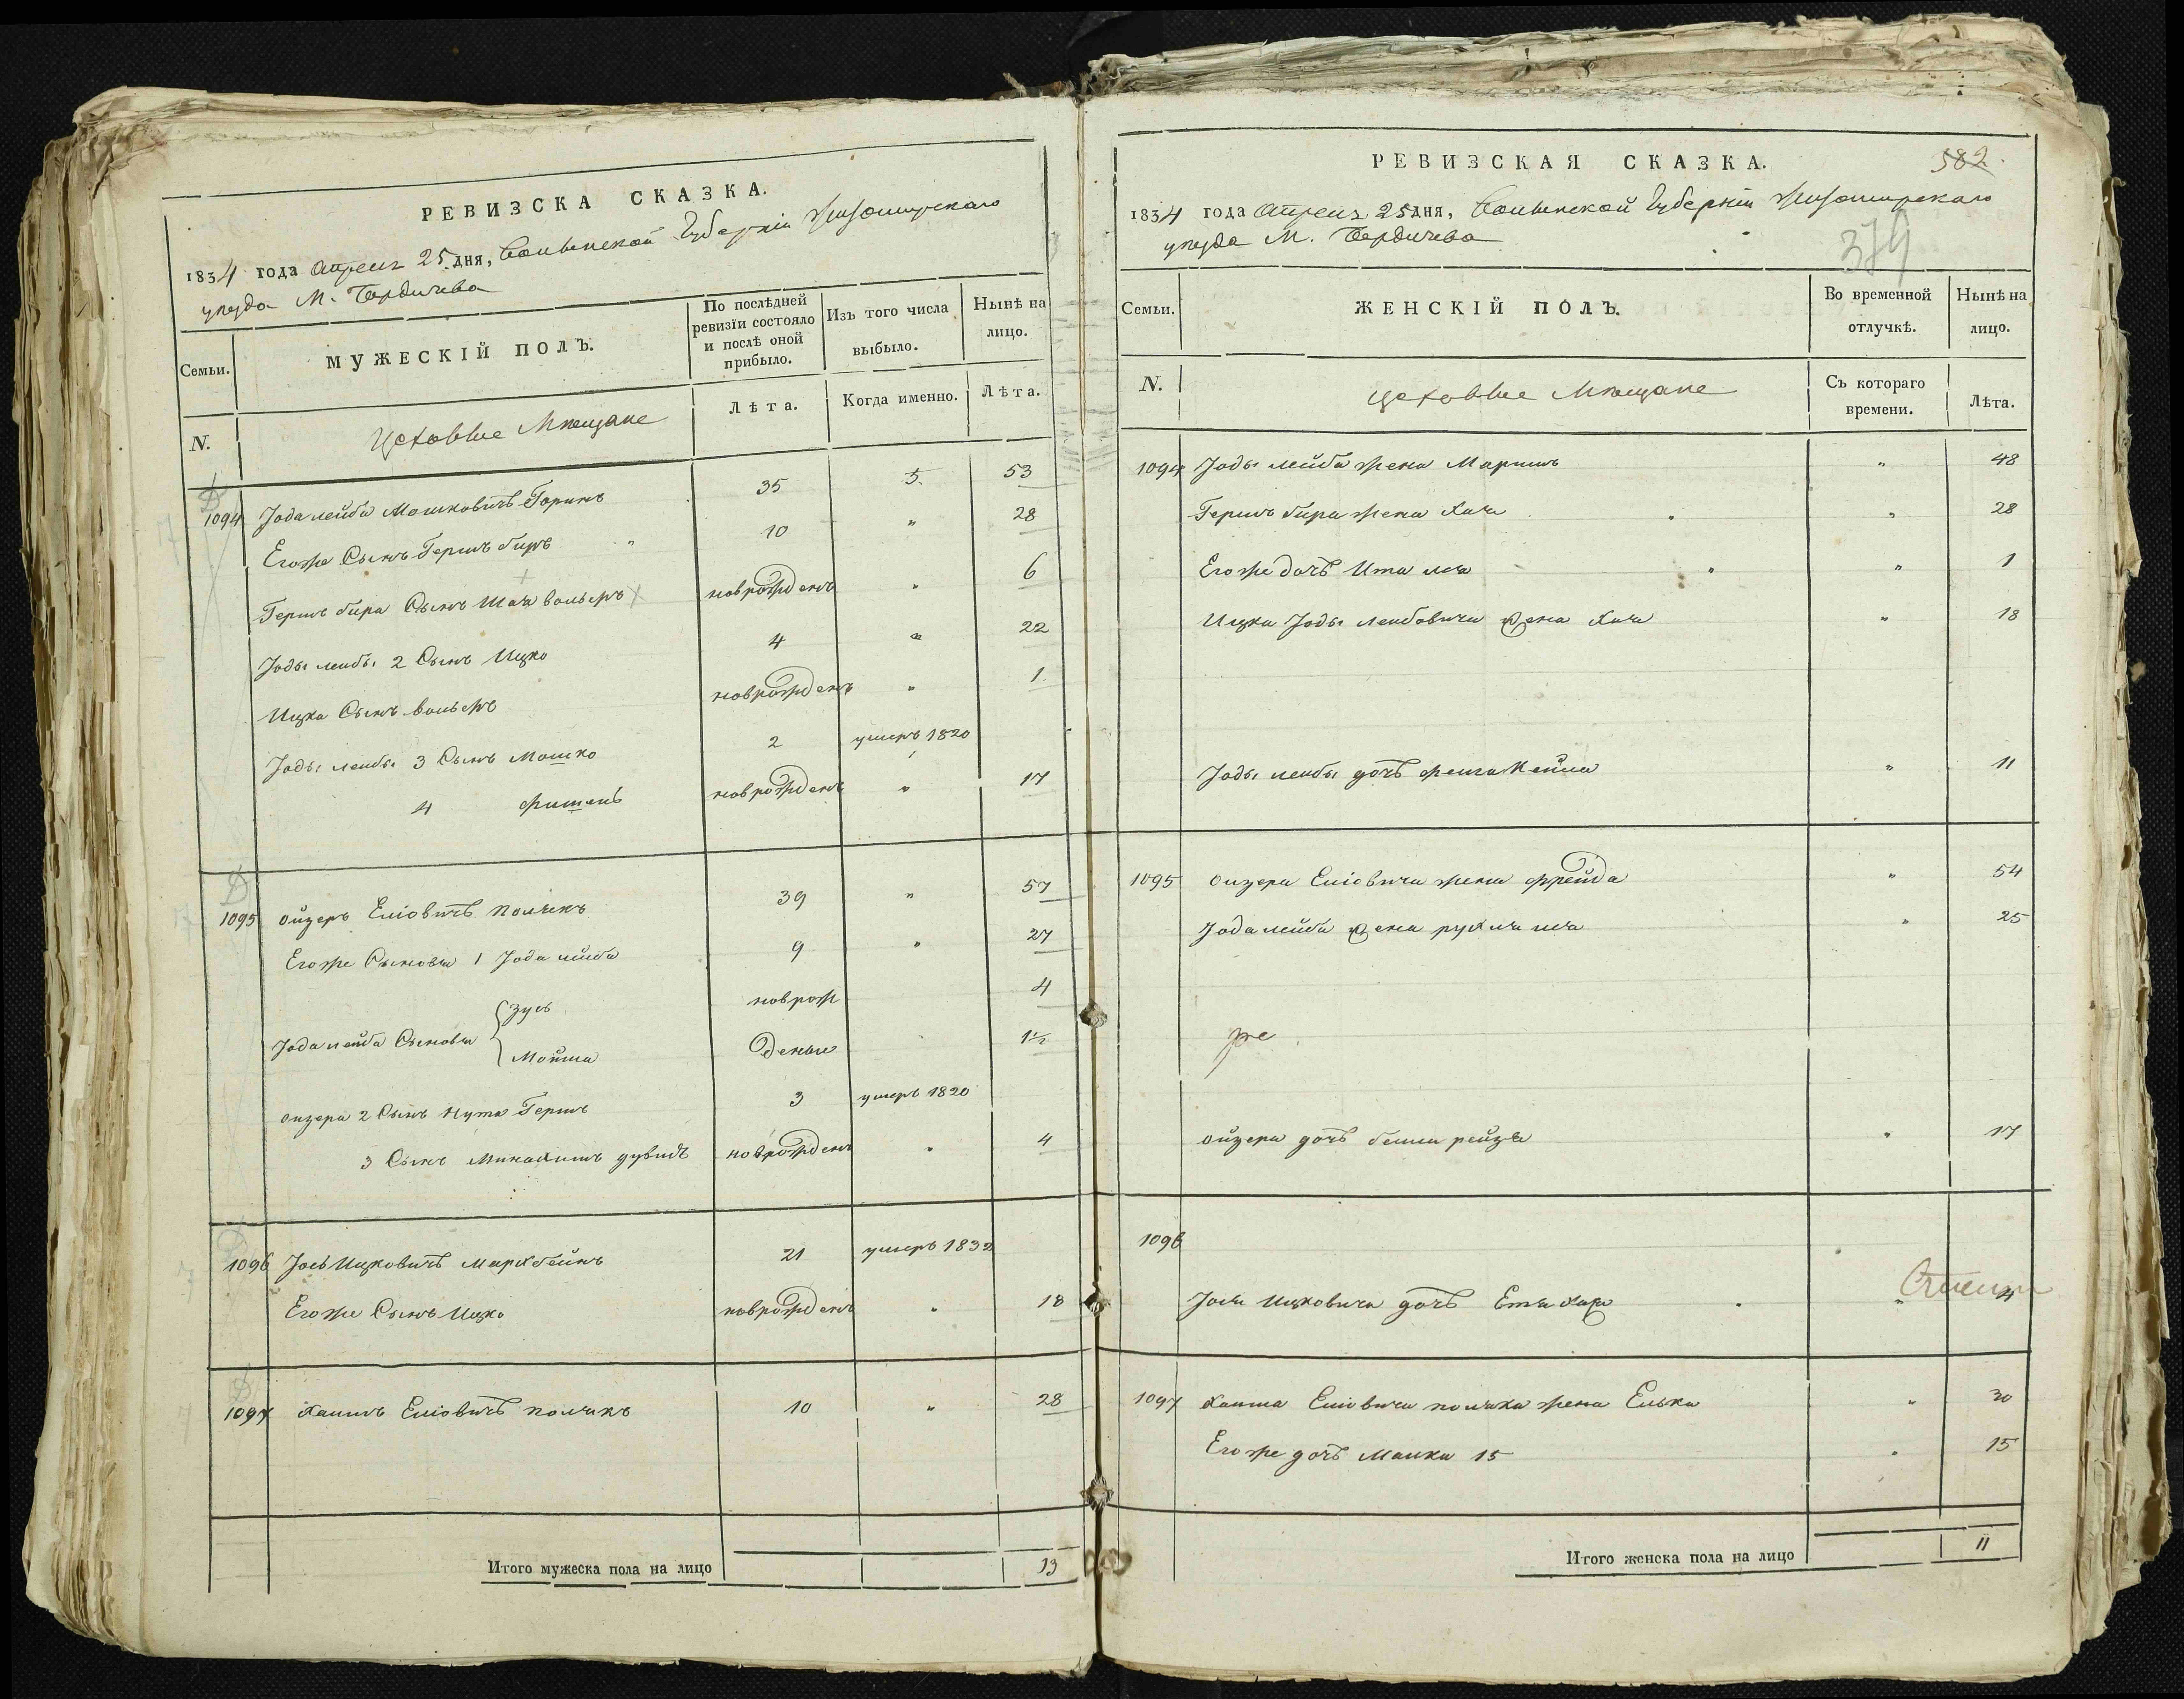 РЕВИЗСКА СКАЗКА.
1834 года Апреля 25 дня, Волынской Губерніи Житомирскаго
уезда М. Бердичева
Семьи.
МУЖЕСКІЙ ПОЛЪ.
По послѣдней ревизіи состояло и послѣ оной прибыло.
Изъ того числа выбыло.
Нынѣ на лицо.
N.
Цеховые Мещане
Лѣта.
Когда именно.
Лѣта.
1094 Іода лейба Мошковичъ 35 53
Егоже Сынъ Гершъ биръ " 10 " 28
Гершъ бира Сынъ вольфъ новорожденъ " 6
Іоды лейбы 2 Сынъ Ицко 4 " 22
Ицка Сынъ вольфъ новорожденъ " 1
Іоды лейбы 3 Сынъ Мошко 2 умеръ 1820
4 фишель новорожденъ " 17
1095 Ойзеръ Еліовичъ Полякъ 39 " 57
Егоже Сыновья 1 Іода лейба 9 " 27
Іода лейба Сыновья { Зусь новрож 4
Мойша денные 1 1/2
Ойзера 2 Сынъ Нута Гершъ 3 умеръ 1820
3 Сынъ дувидъ новорожденъ " 4
1096 Іось Ицковичъ 21 умеръ 1832
Егоже Сынъ Ицко новорожденъ " 18
1097 Хаимъ Еліовичъ полякъ 10 " 28
Итого мужеска пола на лицо 13
РЕВИЗСКАЯ СКАЗКА.
582.
1834 года Апреля 25 дня, Волынской Губерніи Житомирскаго
уезда М. Бердичева
379
Семьи.
ЖЕНСКІЙ ПОЛЪ.
Во временной отлучкѣ.
Нынѣ на лицо.
N.
Цеховые Мещане
Съ котораго времени.
Лѣта.
1094 Іоды лейба жена " 48
Гершъ бира жена Хая " 28
Егоже дочь Ита лея " 1
Ицка Іоды Лейбовича жена Хая " 18
Іоды лейбы дочь " 11
1095 Ойзера Еліовича жена фрейда " 54
Іода лейба жена рухля лея " 25
же
Ойзера дочь бейла рейзя " 17
1096
Іося Ицковича дочь Етя "
1097 Хаима Еліовича поляка жена Елька " 30
Егоже дочь Малка 15 " 15
Итого женска пола на лицо 11